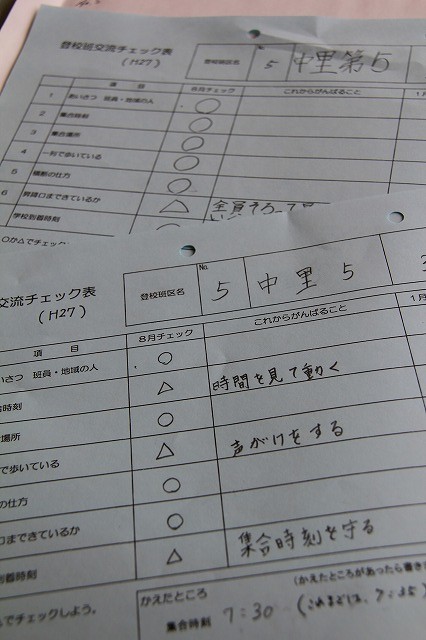 登校班交流チェック表
(H27)
登校班区名 5 中里第5
項目 8月チェック これからがんばること 1
1 あいさつ 班員・地域の人 ○
2 集合時刻 ○
3 集合場所 ○
4 一列で歩いている ○
5 横断の仕方 ○
6 昇降口まできているか △ 全員そろって
学校到着時刻
○か△でチェック
交流チェック表
(H27)
登校班区名 No. 5 中里5
項目 8月チェック これからがんばること 1月
いさつ 班員・地域の人 ○
合時刻 △ 時間を見て動く
場所 ○
で歩いている △ 声がけをする
の仕方 ○
口まできているか ○
到着時刻 △ 集合時刻を守る
でチェックしよう。
かえたところ (かえたところがあったら書き
集合時刻 7:30 (これまでは、7:35)